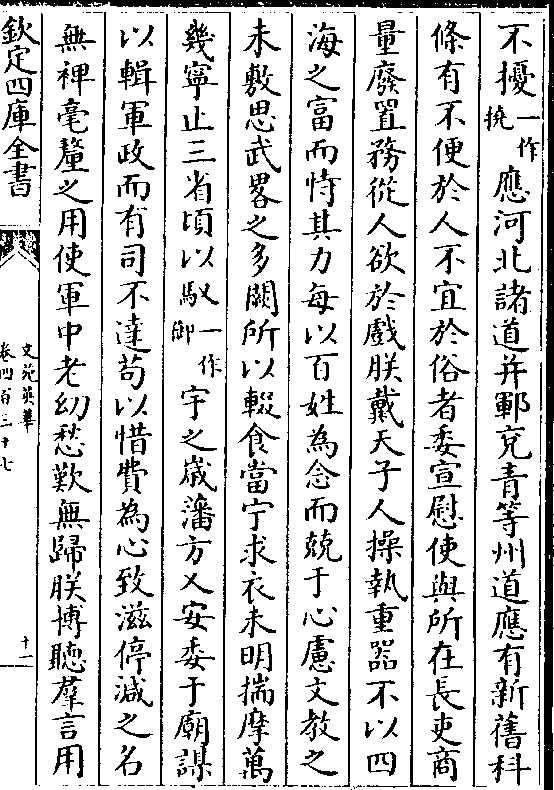 不擾一作撓應河北諸道并鄆兖青等州道應有新舊科
條有不便於人不宜於俗者委宣慰使與所在長吏商
量廢置務從人欲於戲朕戴天子人操執重器不以四
海之富而恃其力每以百姓為念而兢于心慮文教之
未敷思武畧之多闕所以輟食當宁求衣未明揣摩萬
幾寧止三省頃以馭一作御宇之嵗藩方乂安委于廟謀
以輯軍政而有司不達苟以惜費為心致滋停減之名
無裨毫釐之用使軍中老幼愁歎無歸朕博聽羣言用
欽定四庫全書
文苑英華
卷四百三十七
十一